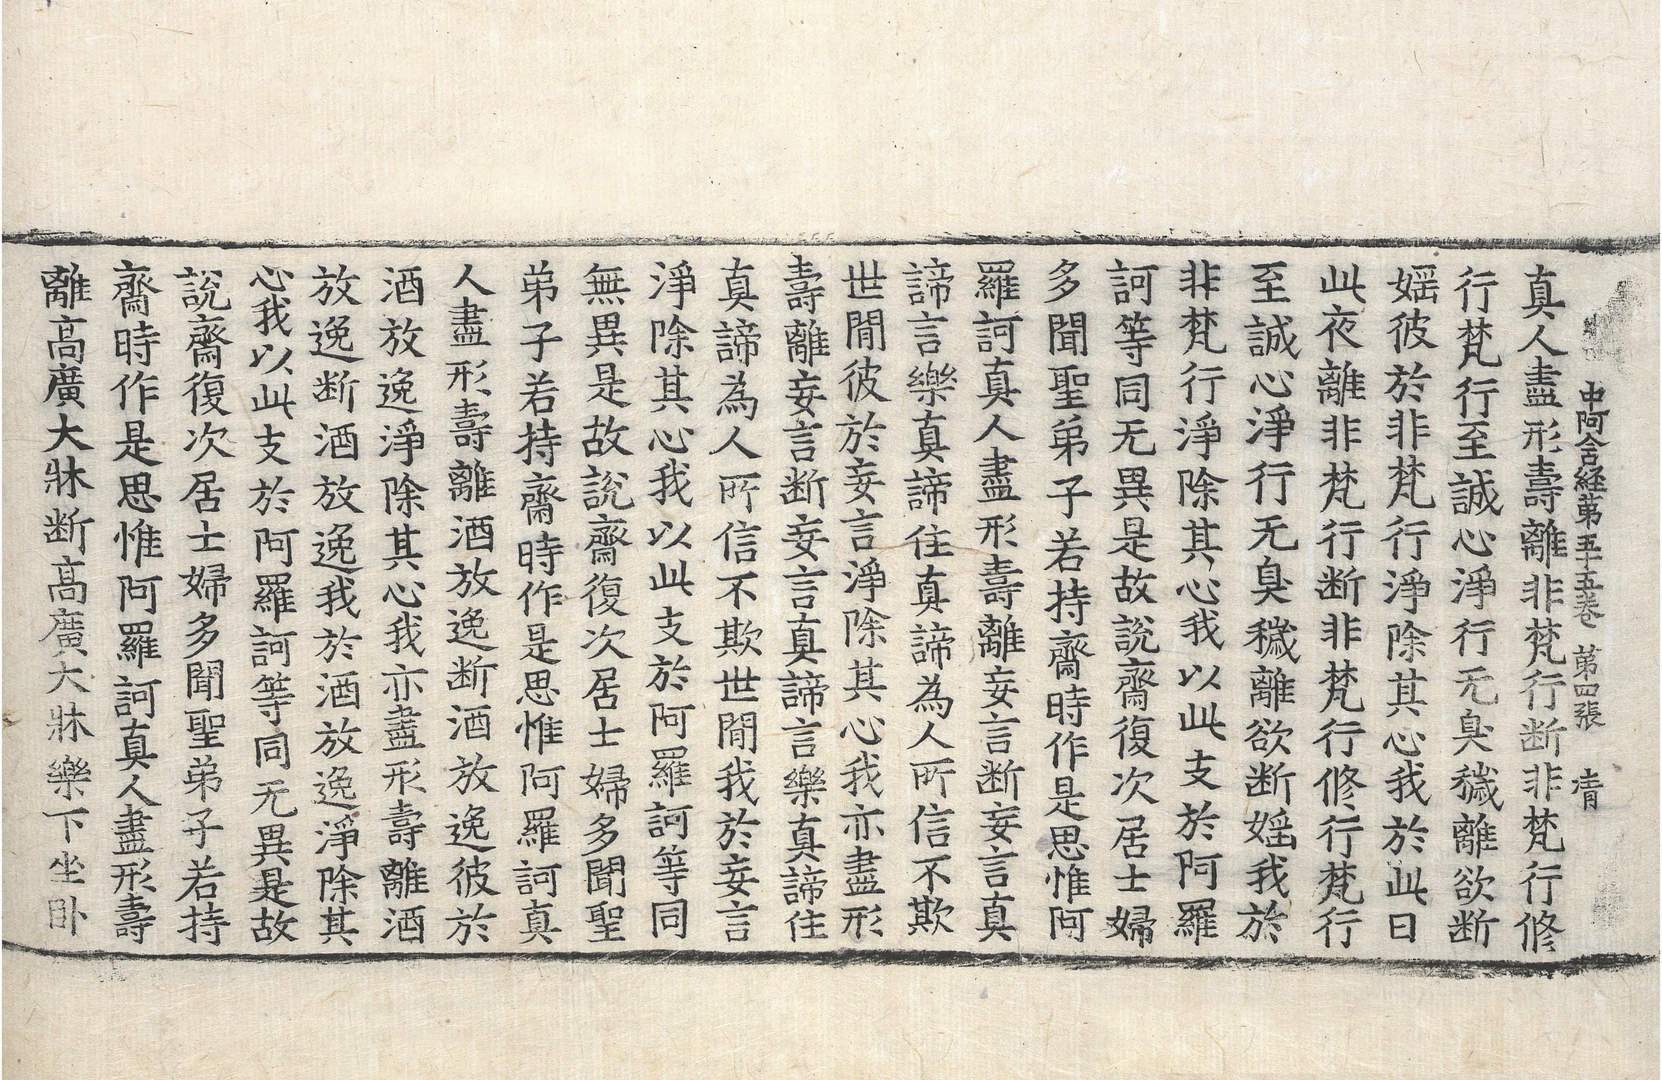 中阿含経第五十五卷 第四張 清
真人盡形壽離非梵行断非梵行修
行梵行至誠心淨行无臭穢離欲断
婬彼於非梵行淨除其心我於此日
此夜離非梵行断非梵行修行梵行
至誠心淨行无臭穢離欲断婬我於
非梵行淨除其心我以此支於阿羅
訶等同无異是故說齋復次居士婦
多聞聖弟子若持齋時作是思惟阿
羅訶真人盡形壽離妄言断妄言真
諦言樂真諦住真諦為人所信不欺
世間彼於妄言淨除其心我亦盡形
壽離妄言断妄言真諦言樂真諦住
真諦為人所信不欺世間我於妄言
淨除其心我以此支於阿羅訶等同
無異是故說齋復次居士婦多聞聖
弟子若持齋時作是思惟阿羅訶真
人盡形壽離酒放逸断酒放逸彼於
酒放逸淨除其心我亦盡形壽離酒
放逸断酒放逸我於酒放逸淨除其
心我以此支於阿羅訶等同无異是故
說齋復次居士婦多聞聖弟子若持
齋時作是思惟阿羅訶真人盡形壽
離高廣大牀断高廣大牀樂下坐卧